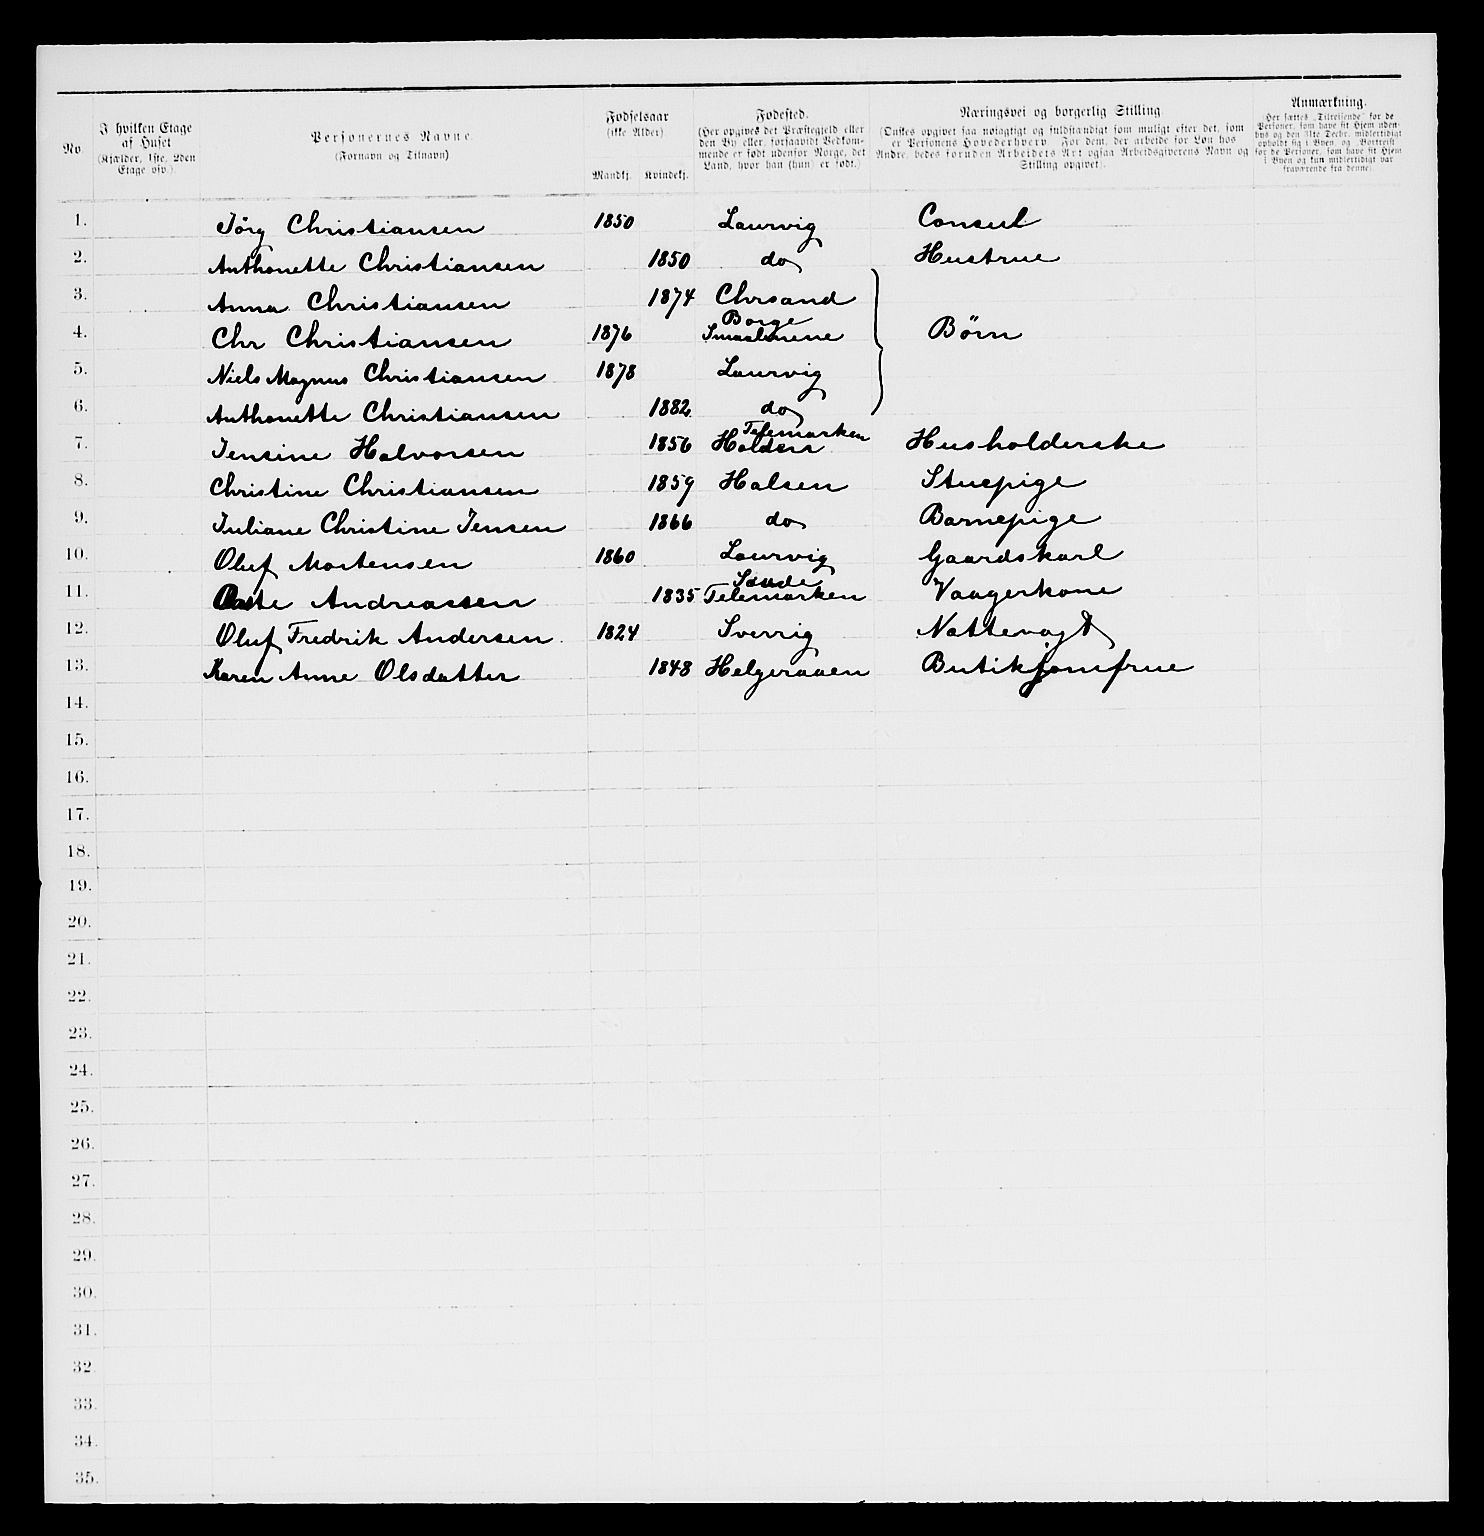 No.
I hvilken Etage
af Huset
(Kjælder, 1ste, 2den
Etage osv.).
Personernes Navne.
(Fornavn og Tilnavn)
Fødselsaar
(ikke Alder)
Mandkj. Kvindekj.
Fødested.
(Her opgives det Præstegjeld eller
den By eller, forsaavidt Vedkom-
mende er født udenfor Norge, det
Land, hvor han (hun) er født.)
Næringsvei og borgerlig Stilling.
(Ønskes opgivet saa nøiagtigt og fuldstændigt som muligt efter det, som
er Personens Hovederhverv. For dem, der arbeide for Løn hos
Andre, bedes foruden Arbeidets Art ogsaa Arbeidsgiverens Navn og
Stilling opgivet)
Anmærkning.
(Her sættes „Tilreisende" for de
Personer, som have sit Hjem uden-
bys og den 31te Decbr. midlertidigt
opholdt sig i Byen, og „Bortreist"
for de Personer, som have sit Hjem
i Byen og kun midlertidigt var
fraværende fra denne)
1. Jörg Christiansen 1850 Laurvig Consul
2. Anthonette Christiansen 1850 do Hustrue
3. Anna Christiansen 1874 Chrsand
4. Chr Christiansen 1876 Borge Smaalenene Börn
5. Niels Magnus Christiansen 1878 Laurvig
6. Anthonette Christiansen 1882 do
7. Jensine Halvorsen 1856 Telemarken Husholderske
8. Christine Christiansen 1859 Halsen Stuepige
9. Juliane Christine Jensen 1866 do Barnepige
10. Oluf Mortensen 1860 Laurvig Gaardskarl
11. Andreassen 1835 Saude Telemarken Vaagerkone
12. Oluf Fredrik Andersen 1824 Sverrig Nattevagt
13. Karen Anne Olsdatter 1848 Helgeraaen Butikjomfrue
14.
15.
16.
17.
18.
19.
20.
21.
22.
23.
24.
25.
26.
27.
28.
29.
30.
31.
32.
33.
34.
35.